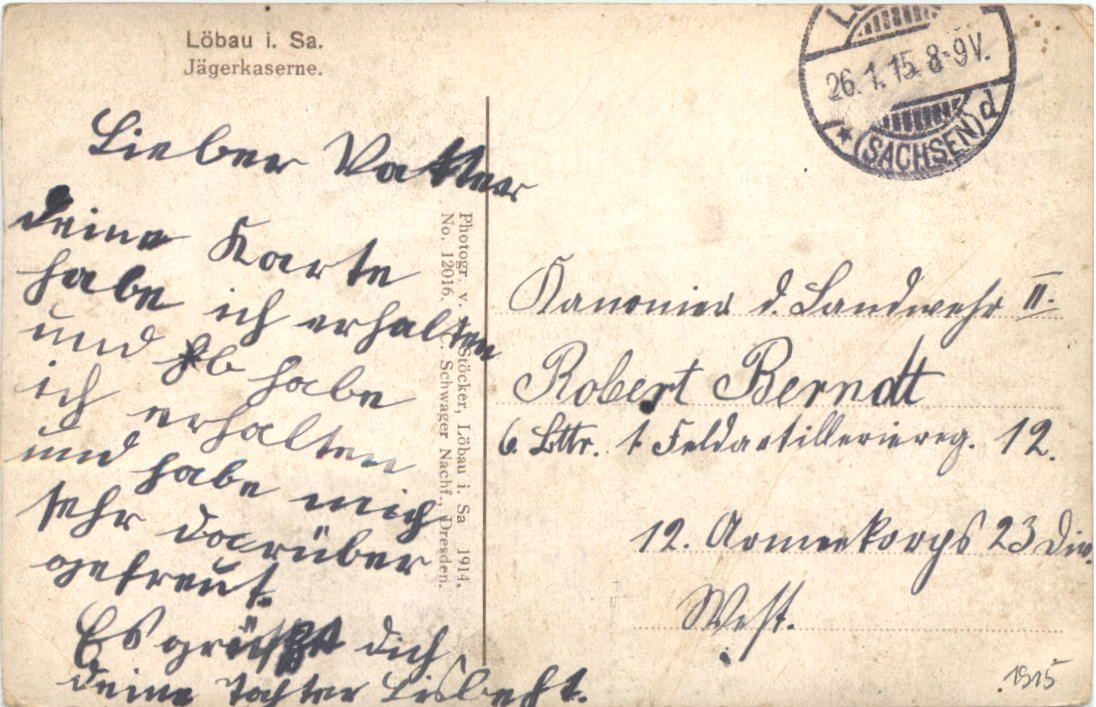 Löbau i. Sa.
Jägerkaserne.
Lieber Vatter
deine Karte
habe ich erhalten
und habe
ich erhalten
und habe mich
sehr darüber
gefreut.
Es grüßt dich
deine Tochter Lisbeht.
Photogr. v. Stöcker, Löbau i. Sa 1914.
No. 12016. C. Schwager Nachf., Dresden.
26.1.15. 8-9V.
* (SACHSEN) d
Kanonier d. Landwehr II.
Robert Berndt
6. Bttr. 1 Feldartilleriereg. 12.
12. Armeekorps 23 Div.
West.
1915